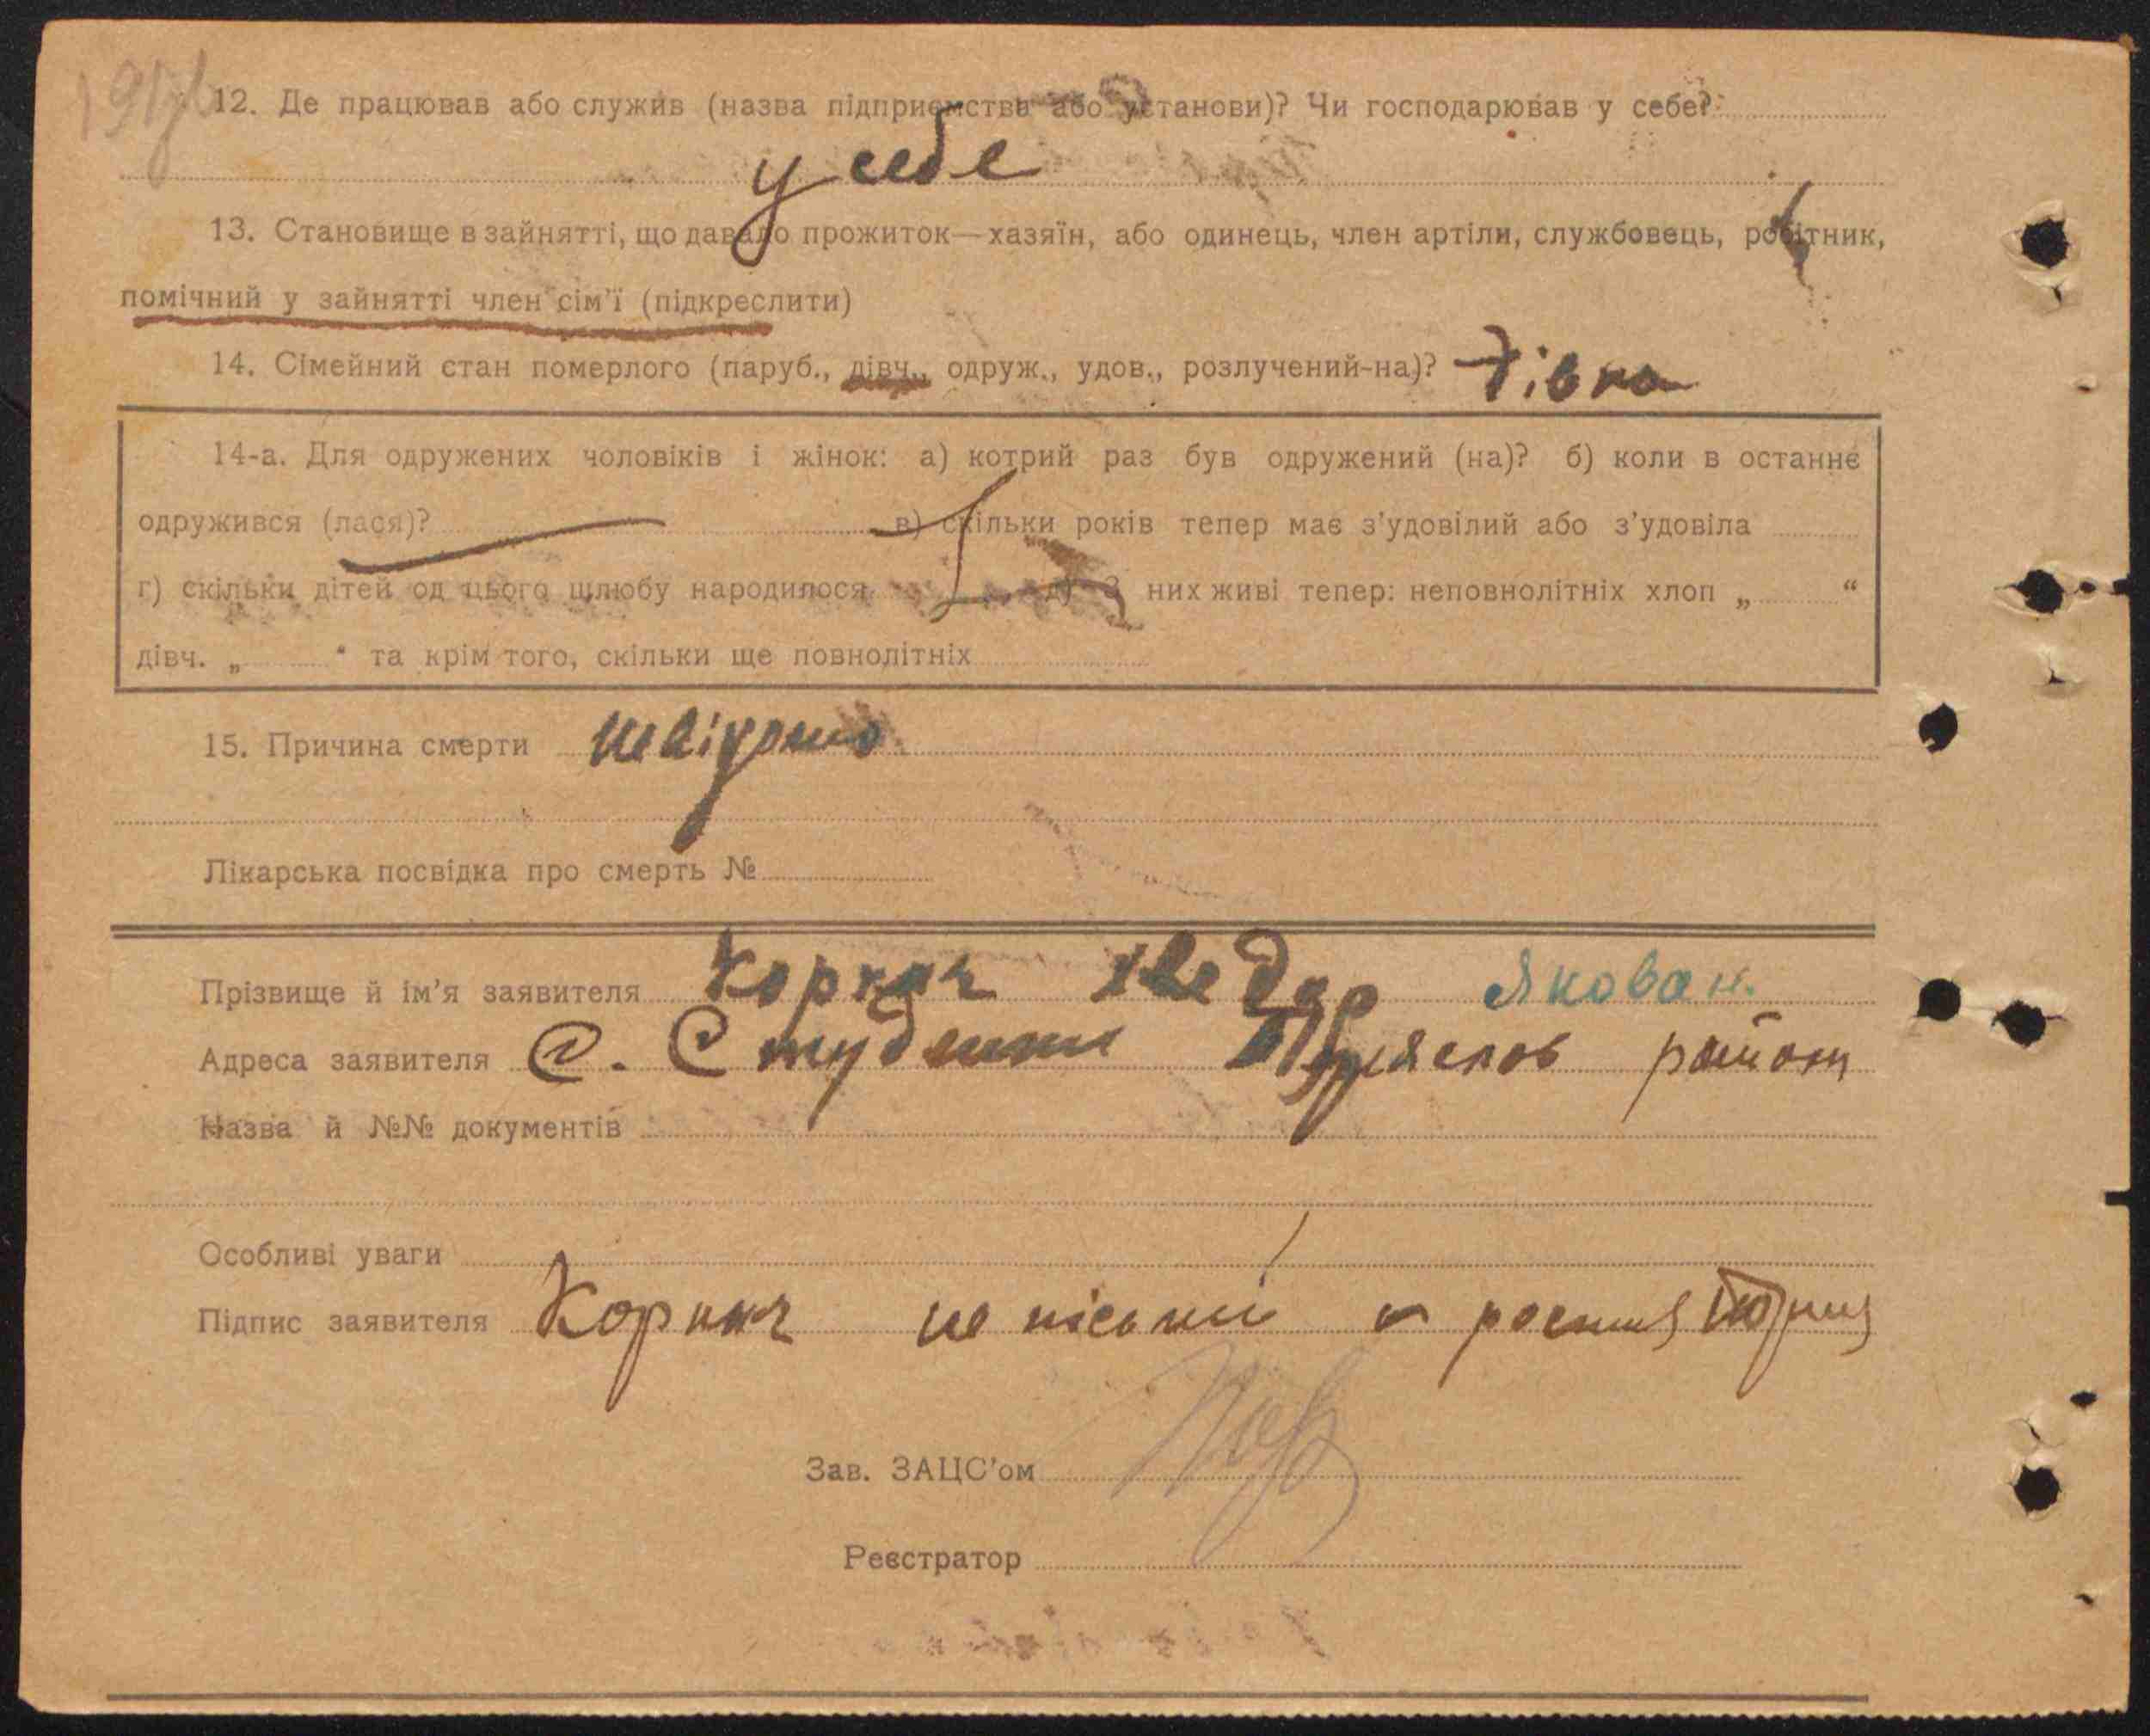 12. Де працював або служив (назва підприємства або установи)? Чи господарював у себе?
у себе
13. Становище в зайнятті, що давало прожиток—хазяїн, або одинець, член артіли, службовець, робітник,
помічний у зайнятті член сім'ї (підкреслити)
14. Сімейний стан померлого (паруб., дівч., одруж., удов., розлучений-на)? дівка
14-а. Для одружених чоловіків і жінок: а) котрий раз був одружений (на)? б) коли в останнє
одружився (лася)? в) скільки років тепер має з'удовілий або з'удовіла
г) скільки дітей од цього шлюбу народилося д) З них живі тепер: неповнолітніх хлоп „ “
дівч. „ “ та крім того, скільки ще повнолітніх
15. Причина смерти невідомо
Лікарська посвідка про смерть №
Прізвище й ім'я заявителя Коркач Хведор Якован.
Адреса заявителя С. Студеники район
Назва й №№ документів
Особливі уваги
Підпис заявителя не písьмений
Зав. ЗАЦС'ом
Реєстратор